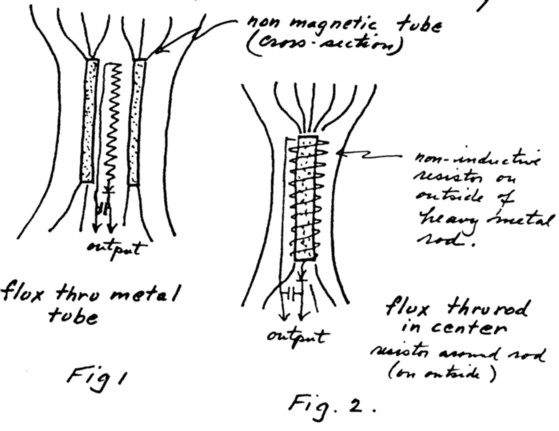 non magnetic tube
(cross-section)
output
flux thru metal
tube
Fig 1
non-inductive
resistor on
outside of
heavy metal
rod.
output
flux thru rod
in center
resistor around rod
(on outside)
Fig. 2.